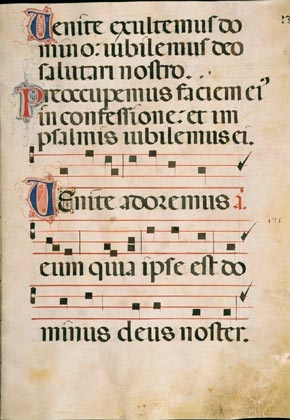 Venite exultemus do
mino: iubilemus deo
salutari nostro...
Preoccupemus faciem ei᾽
in confessione: et im
psalmis iubilemus ei.
VEnite adoremus a.
eum quia ipse est do
minus deus noster.